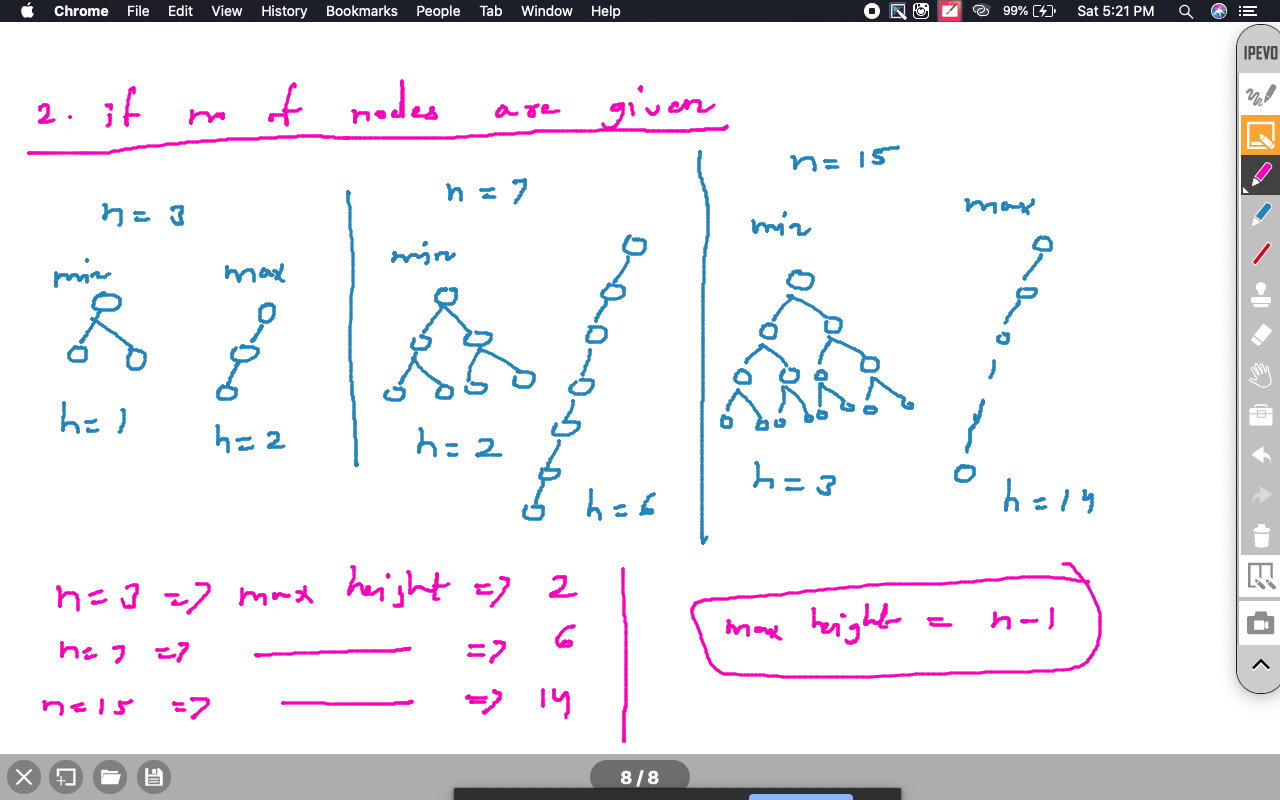 Chrome File Edit View History Bookmarks People Tab Window Help 99% Sat 5:21 PM
IPEVO
2. if no of nodes are given
n = 3
min max
h = 1 h = 2
n = 7
min
h = 2 h = 6
n = 15
min max
h = 3 h = 14
n = 3 => max height => 2
n = 7 => => 6
n = 15 => => 14
max height = n-1
8 / 8